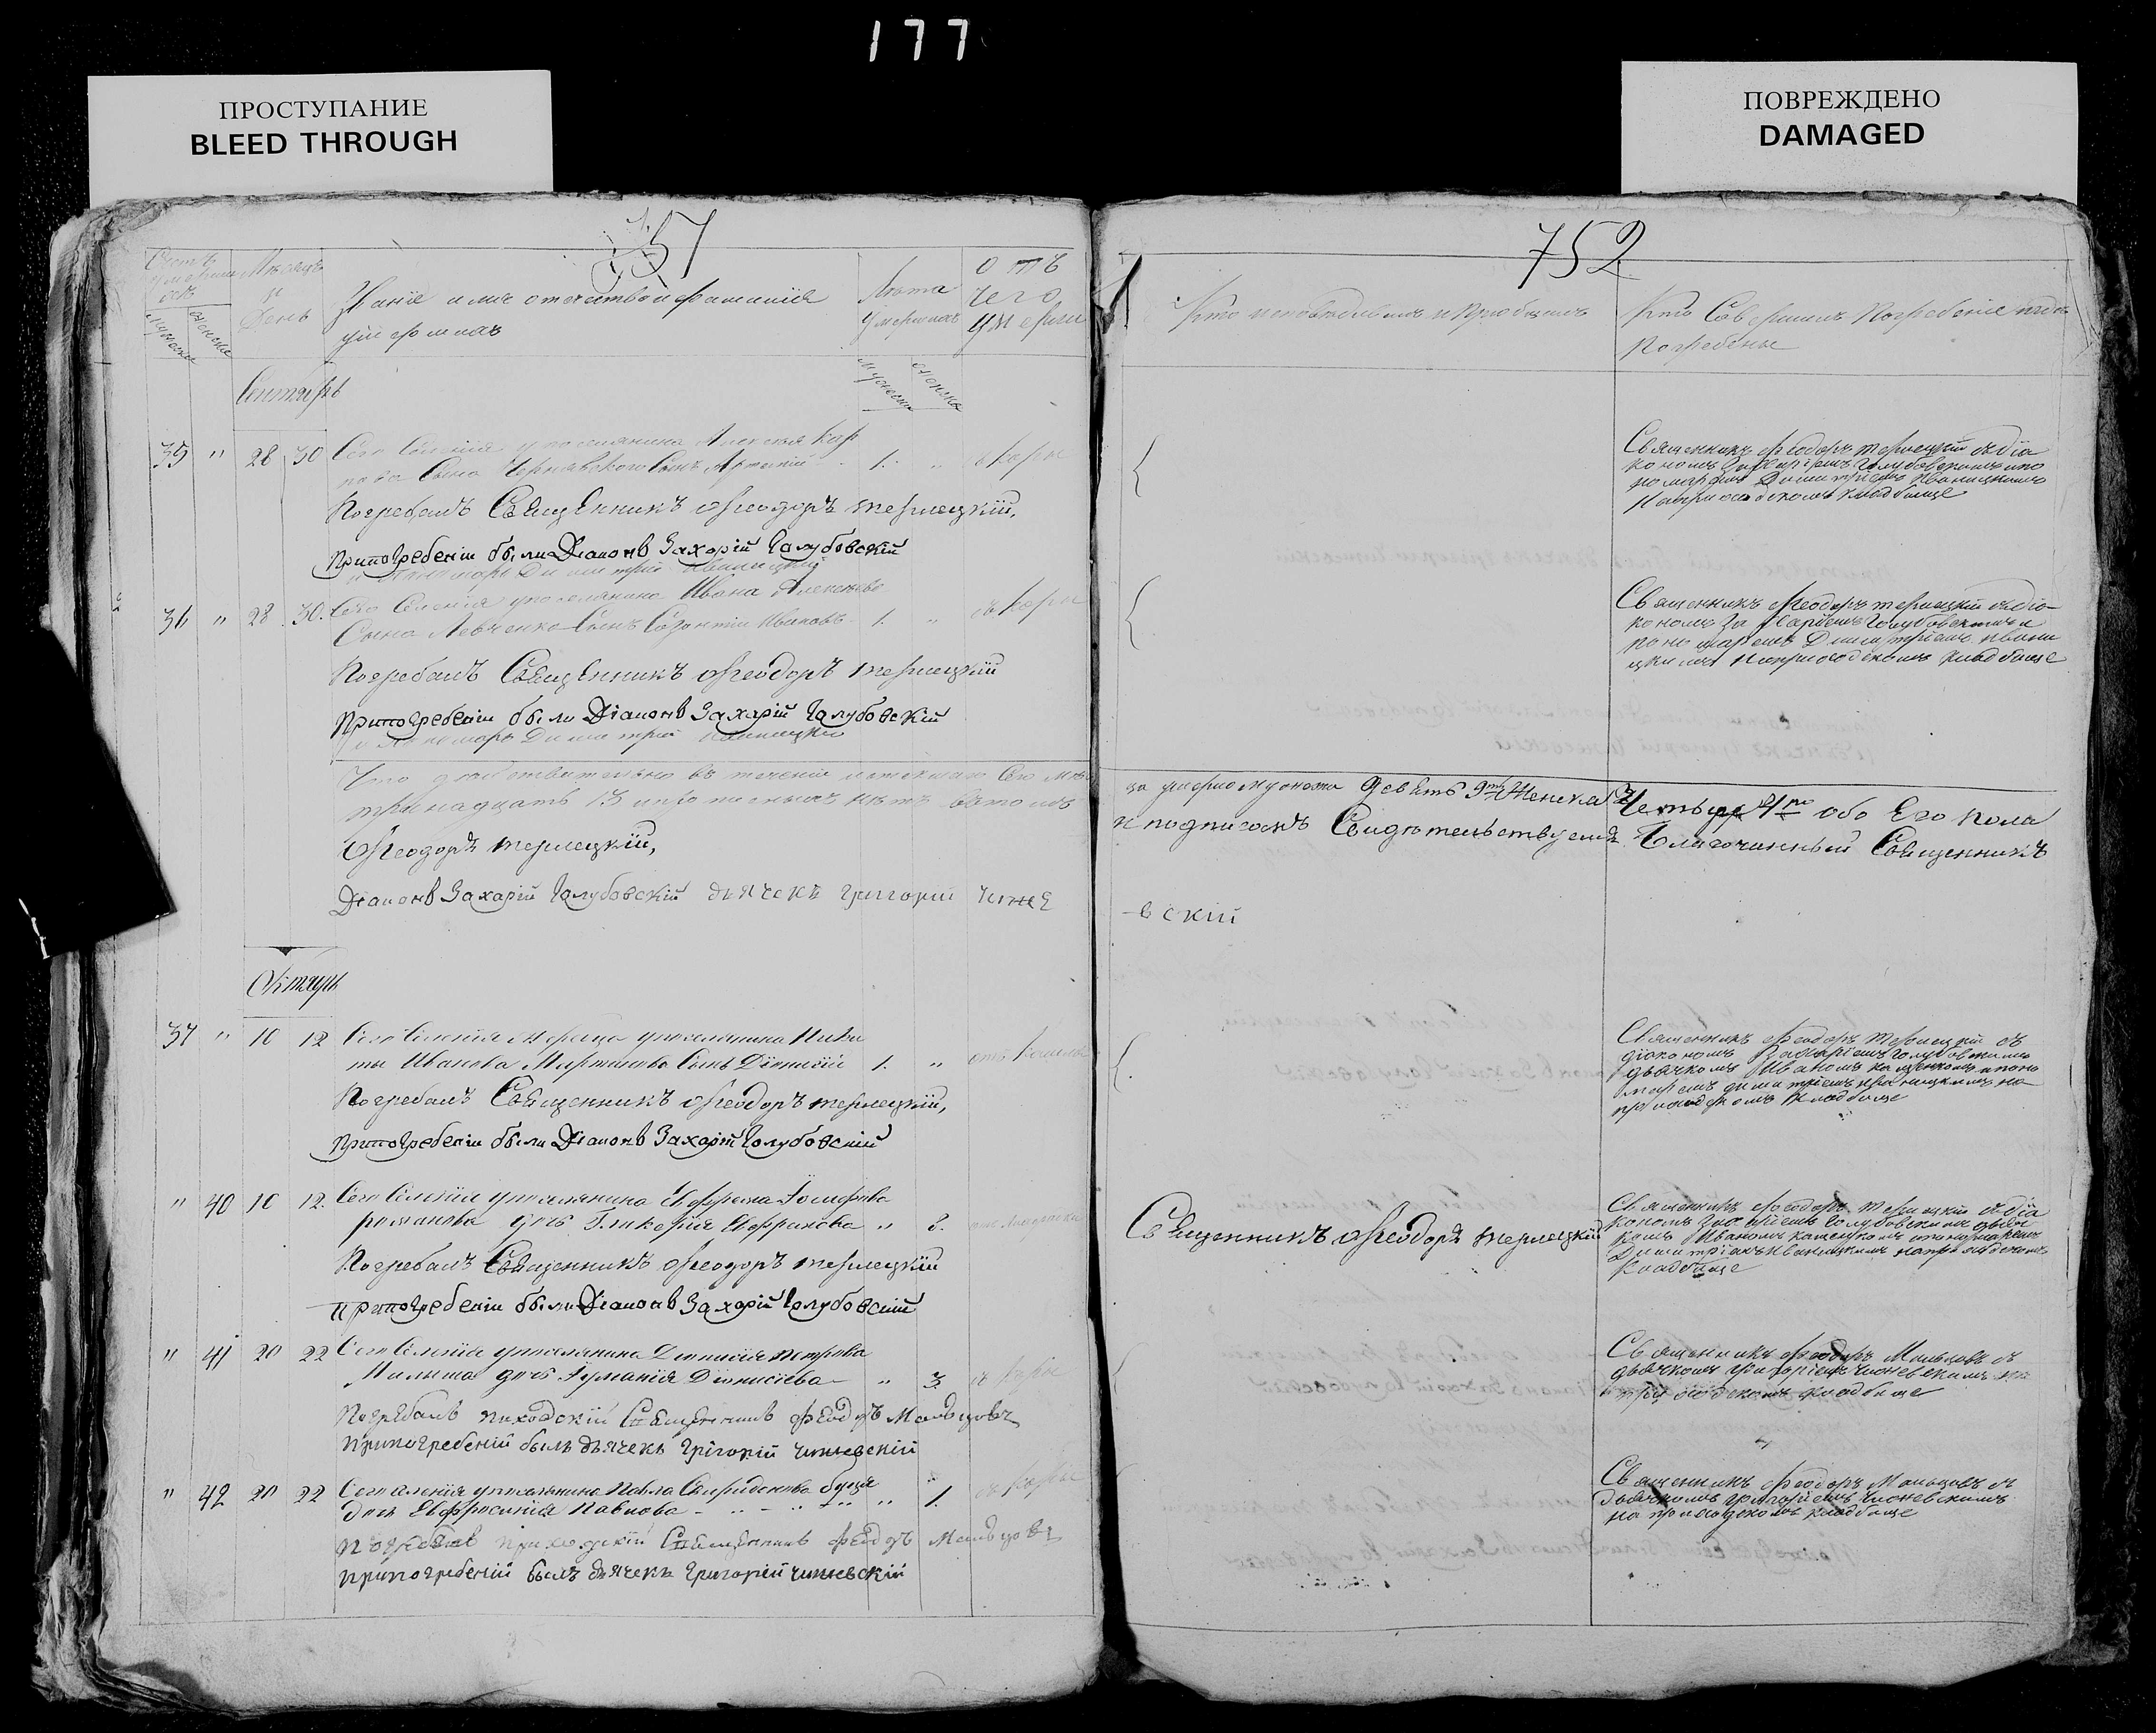 177
ПРОСТУПАНИЕ
BLEED THROUGH
ПОВРЕЖДЕНО
DAMAGED
57
Мѣсяцъ
и
День
Званіе имя отечество и фамилія
умершихъ
Лѣта
умершихъ
отъ
чего
умерли
Сентябрь
35 " 28 30 Сего Селенія упоселянина Алексея Кар
пова Сына Чернявского Сынъ Артемій 1. " о кори
Погребалъ Священникъ Феодоръ терлецкій,
при погребеніи были Діаконъ Захарій Голубовскій
и Пономарь Димитрій Иваницкій
36 " 28 30. Сего Селенія упоселянина Ивана Алексеева
Сына Левченко Сынъ Созонтій Ивановъ 1. " о кори
Погребалъ Священникъ Феодоръ терлецкій
при погребеніи были Діаконъ Захарій Голубовскій
и Пономарь Димитрій Иваницкій
Что действительно въ теченіи
тринадцать 13
Феодоръ терлецкій,
Діаконъ Захарій Голубовскій дьячекъ григорій чиже
Октябрь
37 " 10 12 Сего Селенія упоселянина Ники
ты Иванова Мартинова Сынъ Діонисій 1. " отъ кашля
Погребалъ Священникъ Феодоръ терлецкій,
при погребеніи были Діаконъ Захарій Голубовскій
" 40 10 12. Сего Селенія упоселянина Ефрема Іосифова
романова дочь Гликерія Ефремова " 2.
Погребалъ Священникъ Феодоръ терлецкій
при погребеніи были Діаконъ Захарій Голубовскій
" 41 20 22 Сего Селенія упоселянина Діонисія петрова
дочь Діонисіева " 3.
Погребалъ Священникъ Феодоръ Мальцовъ
при погребеній былъ дьячекъ григорій чижевскій
" 42 20 22 Сего селенія упоселянина Павла Спиридонова
дочь Евфросинія Павлова " 1.
Погребалъ приходскій Священникъ Феодоръ Мальцовъ
при погребеній былъ дьячекъ григорій чижевскій
752
Кто исповѣдывалъ и Пріобщалъ
Кто Совершалъ Погребеніе и гдѣ
Погребены
Священникъ Феодоръ терлецкій съ діа
кономъ Захаріемъ Голубовскимъ и по
номаремъ Димитріемъ Иваницкимъ
На приходскомъ кладбище
Священникъ Феодоръ терлецкій съ діа-
кономъ Захаріемъ Голубовскимъ и
пономаремъ Димитріемъ Ивани
цкимъ На приходскомъ кладбище
девять 9ть Женска Четыре 4ре обоего пола
и подписомъ Свидѣтельствуемъ Благочинный Священникъ
-вскій
Священникъ Феодоръ Терлецкій съ
діакономъ Захаріемъ Голубовскимъ
дьячкомъ Иваномъ и поно
маремъ димитріемъ Иваницкимъ на
приходскомъ кладбище
Священникъ Феодоръ терлецкій
Священникъ Феодоръ Терлецкій съ діа
кономъ Захаріемъ Голубовскимъ дьяч
комъ Иваномъ и пономаремъ
Димитріемъ Иваницкимъ на приходскомъ
кладбище
Священникъ Феодоръ Мальцовъ съ
дьячкомъ григоріемъ чижевскимъ на
приходскомъ кладбище
Священникъ Феодоръ Мальцовъ съ
дьячкомъ григоріемъ Чижевскимъ
на приходскомъ кладбище